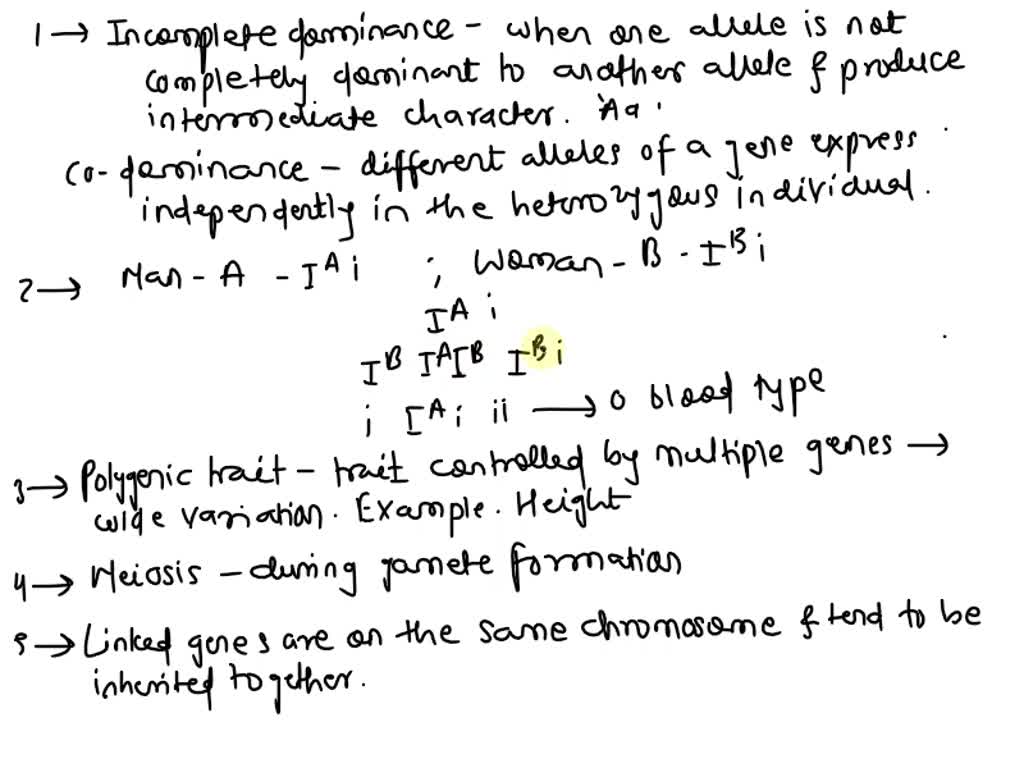 1 → Incomplete dominance - when one allele is not
completely dominant to another allele & produce
intermediate character. Aa.
Co-dominance - different alleles of a gene express
independently in the heterozygous individual.
2 → Man - A - I^A i ; Woman - B - I^B i
I^A i
I^B I^A I^B I^B i
i I^A i ii → O blood type
3 → Polygenic trait - trait controlled by multiple genes →
wide variation. Example. Height
4 → Meiosis - during gamete formation
5 → Linked genes are on the same chromosome & tend to be
inherited together.